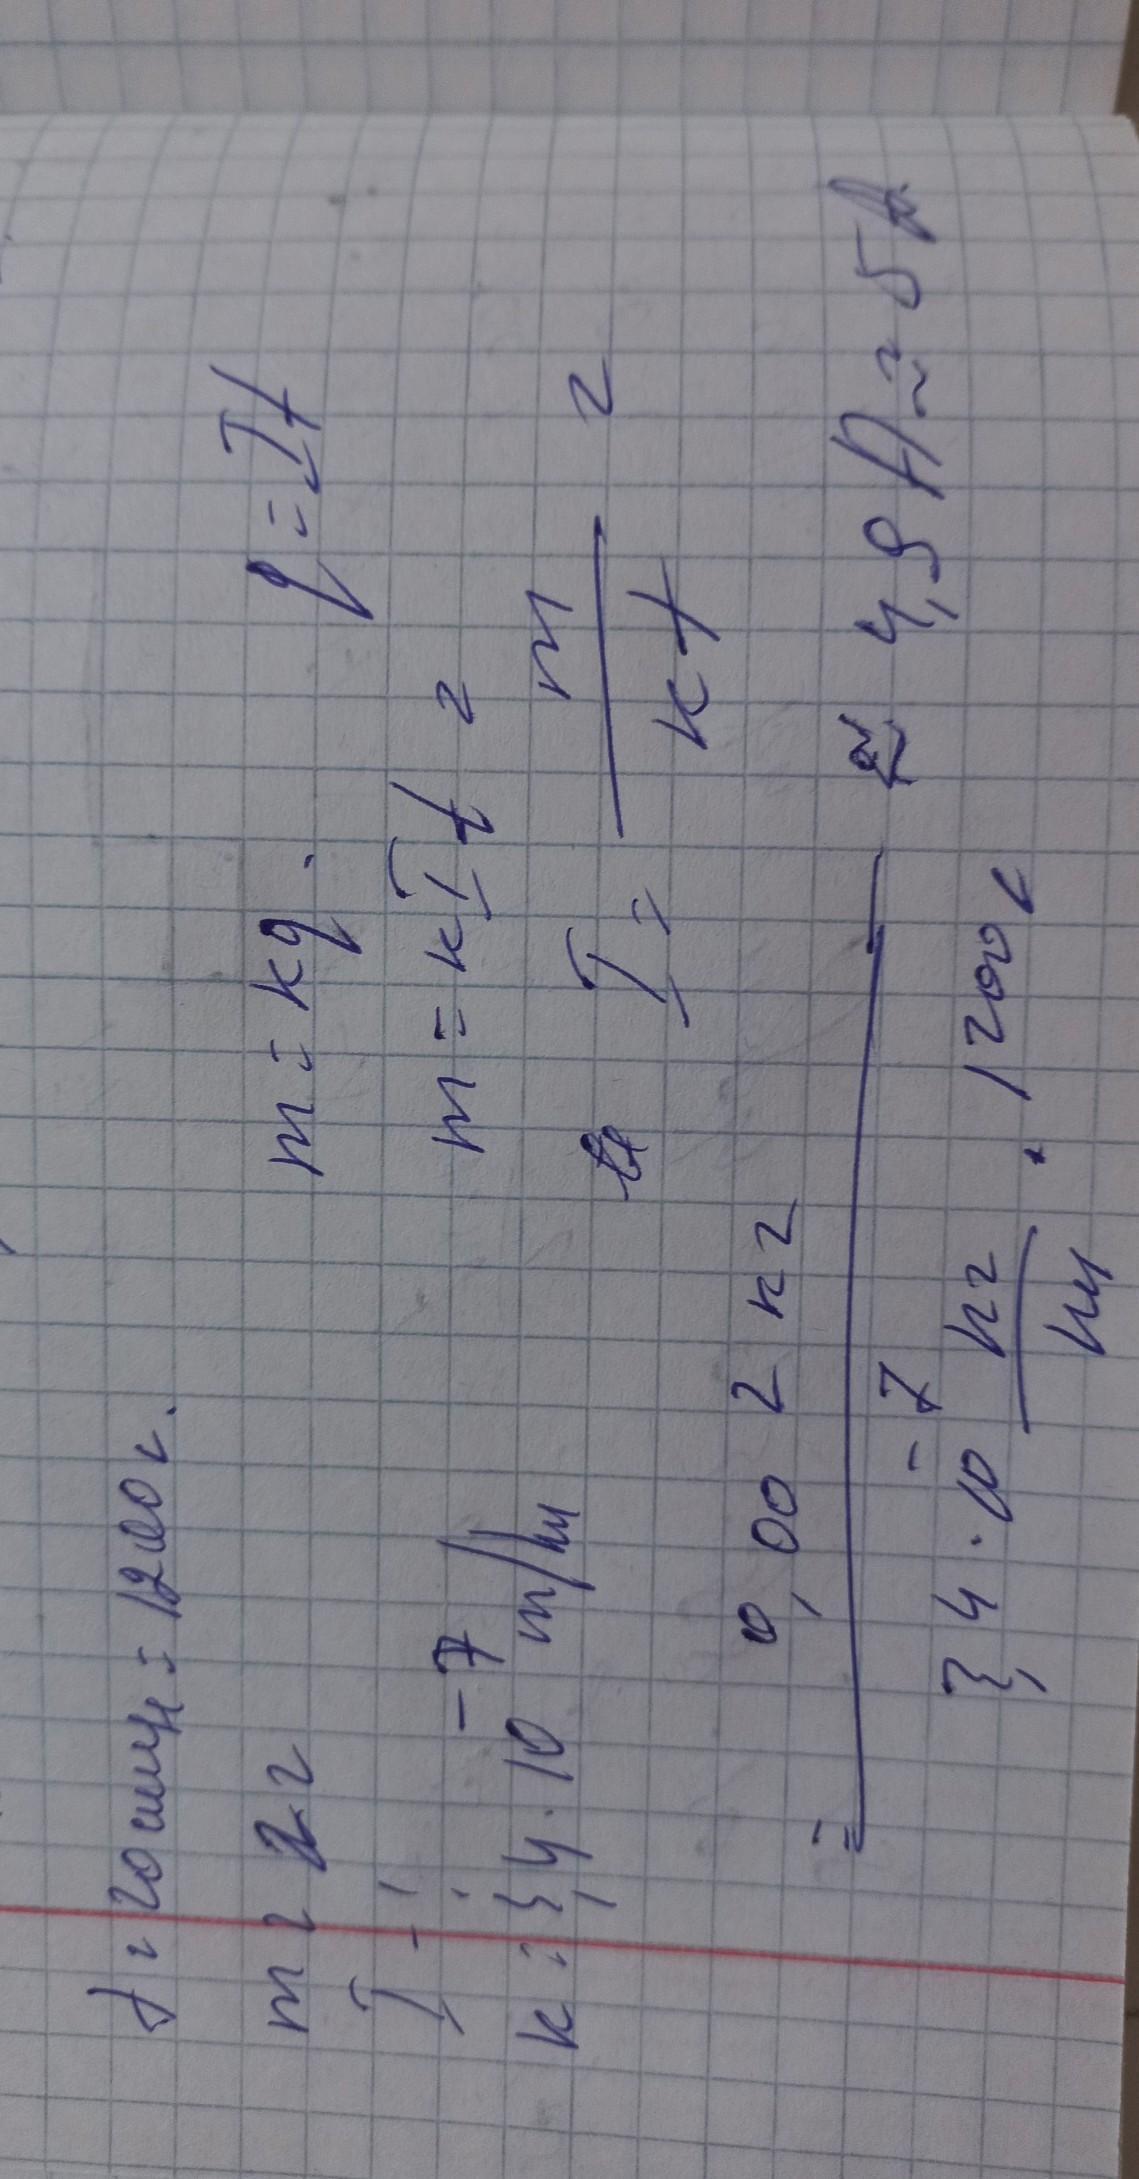 t = 20 мин = 1200 с.
m = 2 г
I - ?
k = 3,4 · 10⁻⁷ м/Кл
m = kq. q = It
m = kIt =
I = m / kt =
= 0,002 кг / 3,4 · 10⁻⁷ кг/Кл · 1200 с ≈ 4,9 А ≈ 5 А